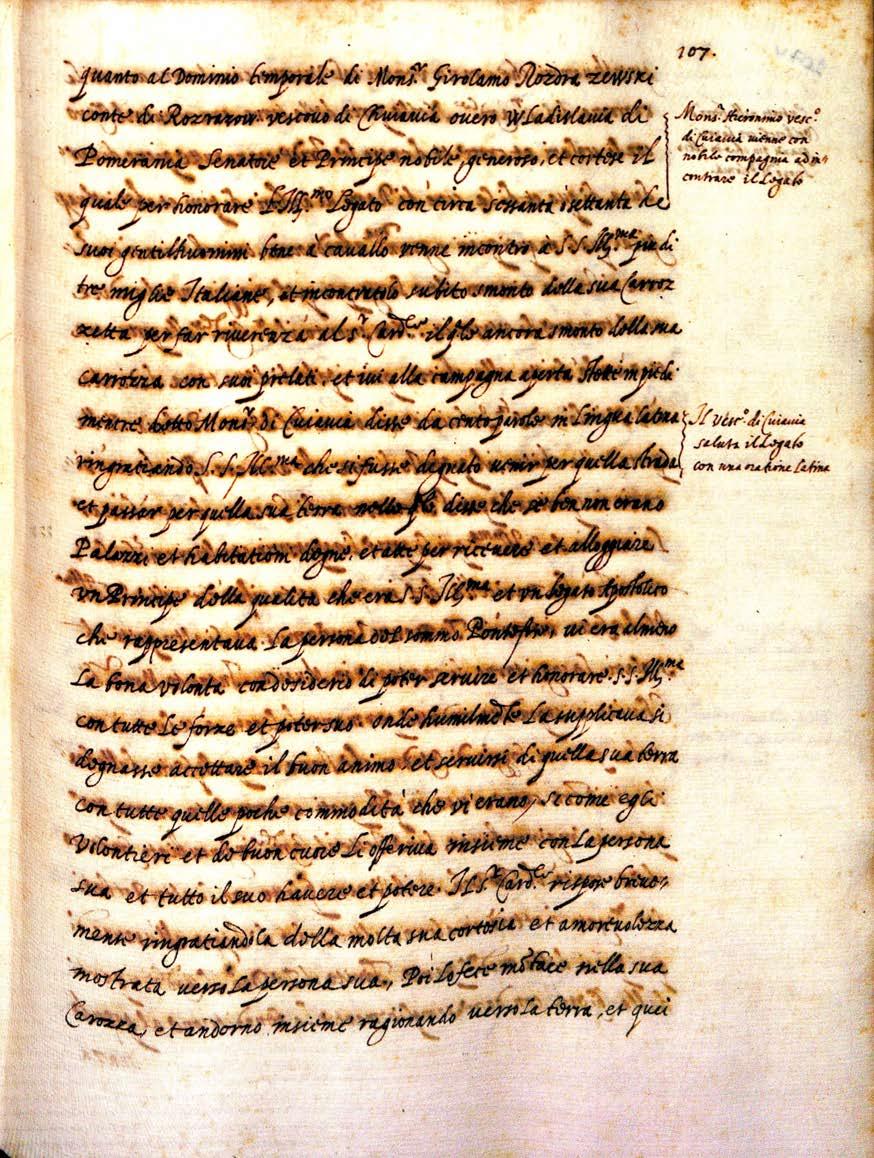 107.
quanto al Dominio temporale di Mons.r Girolamo Rozdrazewski
conte de Rozrazow vescovo di Cuiavia overo Wladislavia di
Pomerania Senatore et Principe nobile, generoso, et cortese il
quale per honorare l'Ill.mo Legato con circa sessanta ò settanta de
suoi gentilhuomini bene à cavallo venne incontro à S.S. Ill.ma più di
tre miglie Italiane, et incontratolo subito smonto della sua Carroz
zetta per far riverenza al s.r Card.le il qle ancora smonto della sua
carrozza con suoi prelati, et ivi alla campagna aperta stette in piedi
mentre detto Mons.r di Cuiavia disse da cento parole in lingua latina
ringratiando S.S. Ill.ma che si fusse degnato venir per quella strada
et passar per quella sua terra nella qle disse che se ben non erano
Palazzi et habitationi degne, et atte per ricevere et alloggiare
un Principe della qualita che era S.S. Ill.ma et un Legato Apostolico
che rappresentava la persona del sommo Pontefice, vi era almeno
la bona volonta con desiderio di poter servire et honorare S.S. Ill.ma
con tutte le forze et poter suo onde humilmte la supplicava si
degnasse accettare il buon animo et servirsi di quella sua terra
con tutte quelle poche commodità che vi erano, si come egli
volontieri et de buon cuore li offeriva insieme con la persona
sua et tutto il suo havere et potere. Il s.r Card.le rispose breve,
mente ringratiandola della molta sua cortesia et amorevolezza
mostrata verso la persona sua, Poi lo fece nella sua
Carozza, et andorno insieme ragionando verso la terra, et quei
Mons.r Hieronimo vesc.o
di Cuiavia vienne con
nobile compagnia ad in,
contrare il Legato
Il vesc.o di Cuiavia
saluta il Legato
con una oratione latina